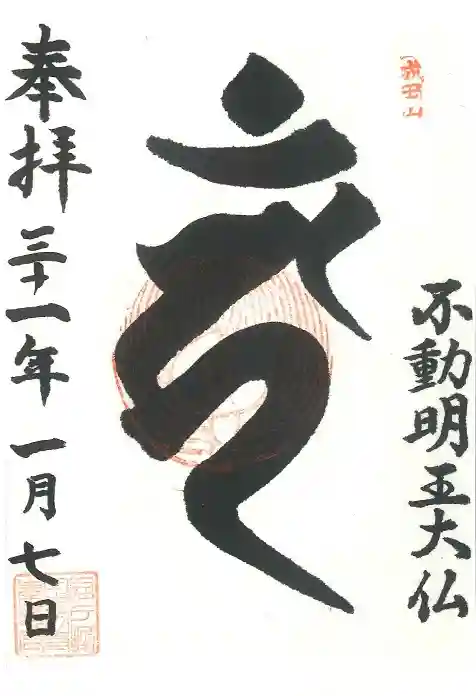 成田山
不動明王大仏
奉拝
三十一年一月七日